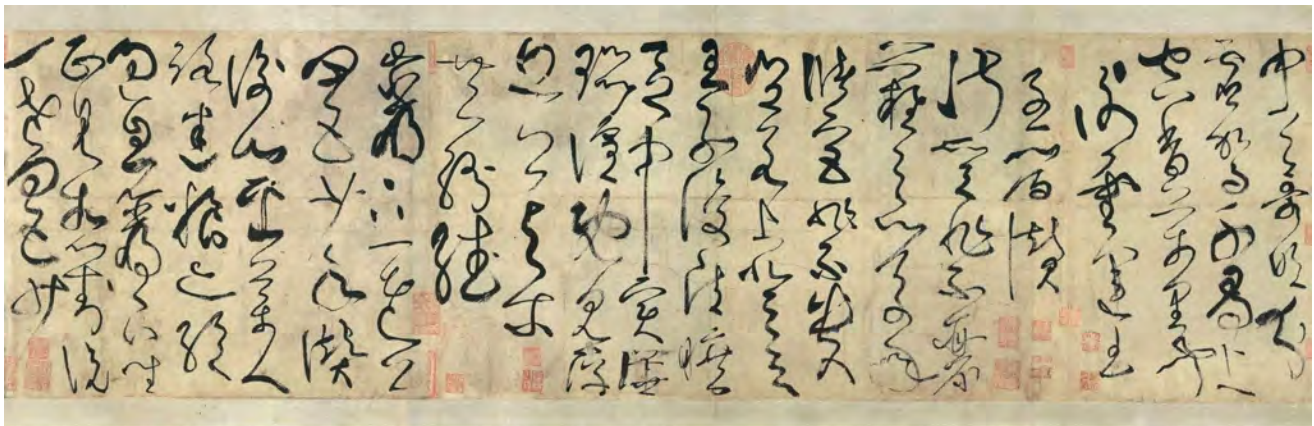 中天哥吹分
虛駕千尋上
空香萬里聞
謝靈運王
子晉讚
淑質非不麗
難之以萬年
儲宮非不貴
豈若上登天
王子復清曠
區中實譁
喧既見浮
丘公與爾
共紛繙
巖下一老公
四五少年讚
衡山採藥人
路迷糧亦絕
過息巖下坐
正見相對說
一老四五少